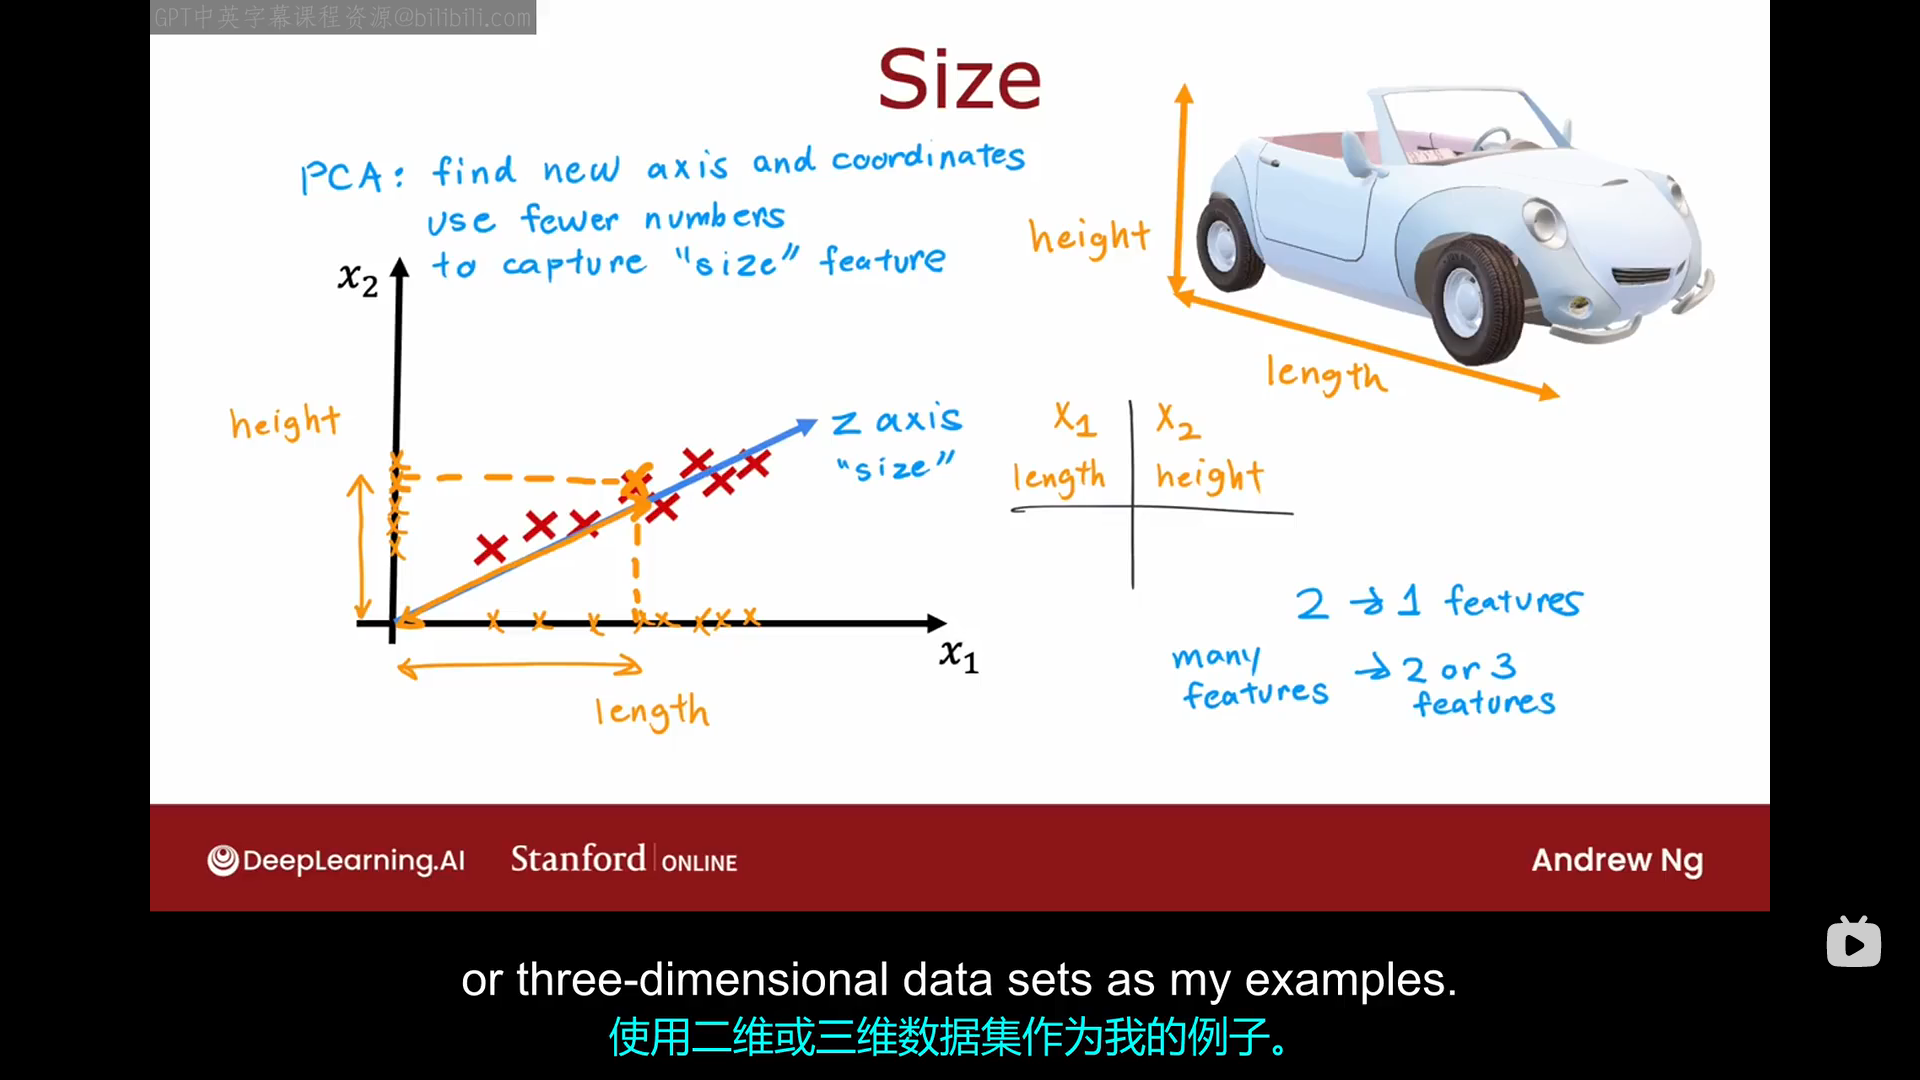 GPT中英字幕课程资源@bilibili.com
Size
PCA: find new axis and coordinates
use fewer numbers
to capture "size" feature
x₂
height
length
height
z axis
"size"
X₁ X₂
length height
2 → 1 features
many features → 2 or 3 features
x₁
length
DeepLearning.AI Stanford ONLINE Andrew Ng
or three-dimensional data sets as my examples.
使用二维或三维数据集作为我的例子。